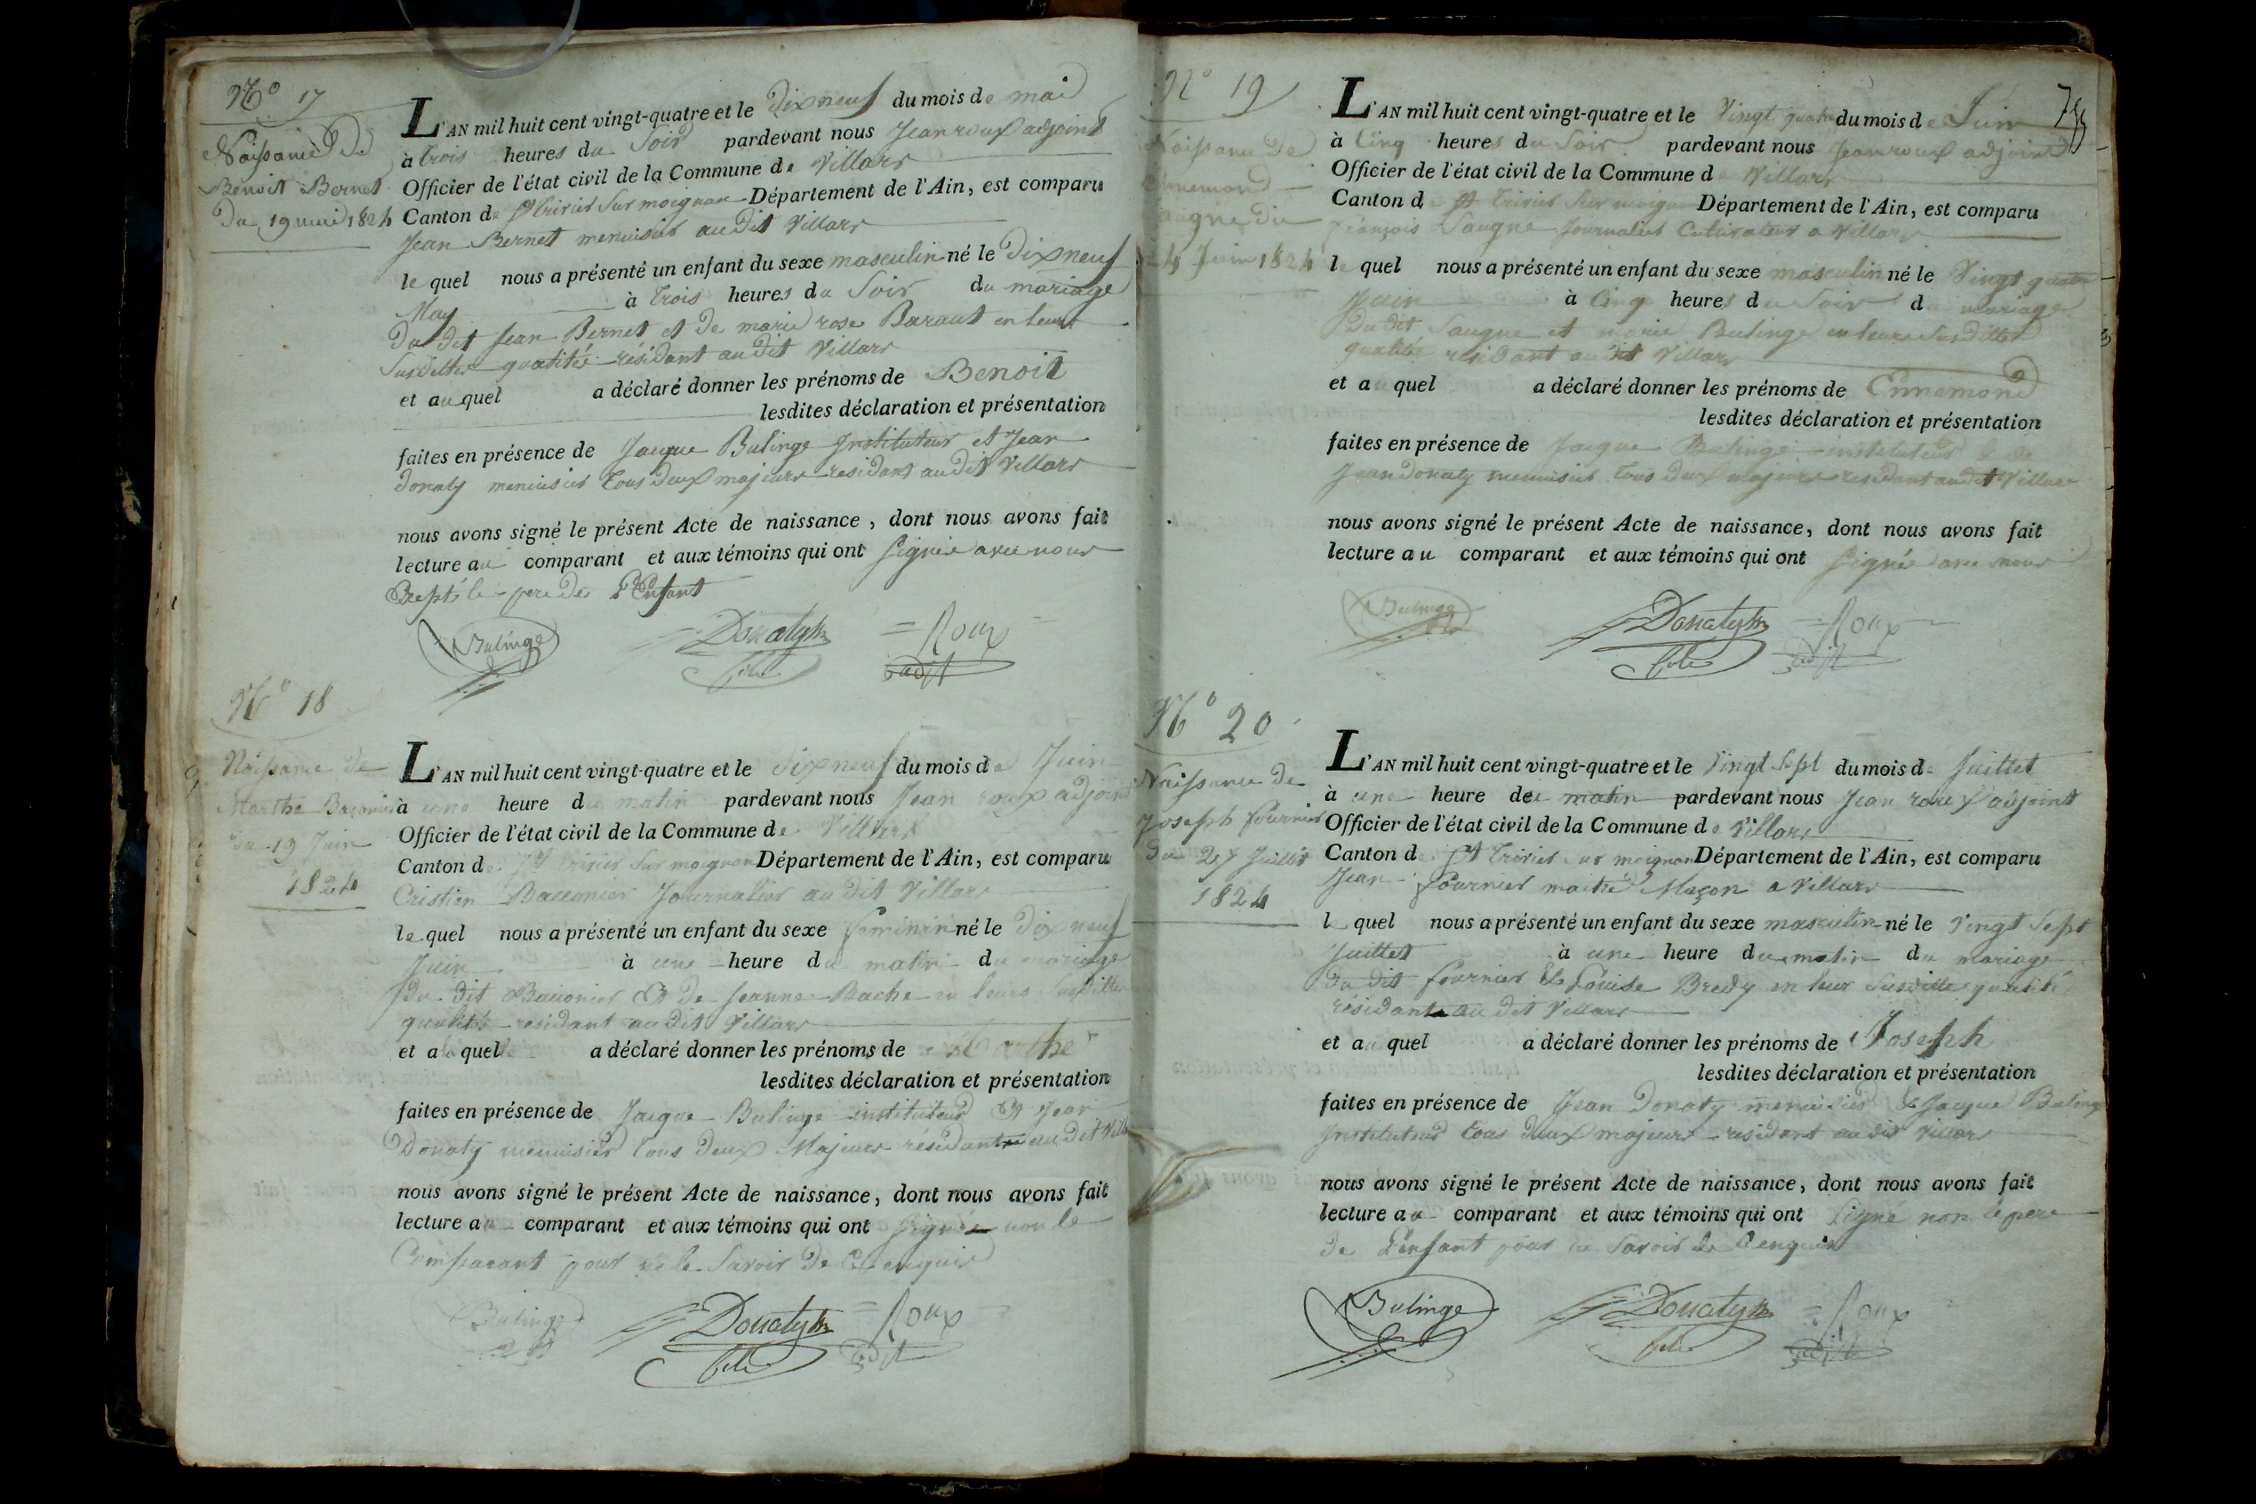 N.o 17
Naissance de
Benoit Bernet
du 19 mai 1824
L'AN mil huit cent vingt-quatre et le dix neuf du mois de mai
à trois heures du soir pardevant nous Jean roux adjoint
Officier de l'état civil de la Commune de Villars
Canton de St Trivier sur moignan Département de l'Ain, est comparu
Jean Bernet menuisier au dit Villars
le quel nous a présenté un enfant du sexe masculin né le dix neuf
May à trois heures du soir du mariage
du dit Jean Bernet et de marie rose Baraut en leurs
susdittes qualités résidant au dit Villars
et au quel a déclaré donner les prénoms de Benoit
lesdites déclaration et présentation
faites en présence de Jacque Bulinge Instituteur et Jean
donaty menuisier tous deux majeurs residant au dit Villars
nous avons signé le présent Acte de naissance, dont nous avons fait
lecture au comparant et aux témoins qui ont signé avec nous
Excepté le pere de L'Enfant
Bulinge Donaty fils Roux adjt
N.o 18
Naissance de
Marthe Baconnier
du 19 Juin
1824
L'AN mil huit cent vingt-quatre et le dix neuf du mois de Juin
à une heure du matin pardevant nous Jean roux adjoint
Officier de l'état civil de la Commune de Villars
Canton de St Trivier sur moignan Département de l'Ain, est comparu
Cristien Bacconier Journalier au dit Villars
le quel nous a présenté un enfant du sexe feminin né le dix neuf
Juin à une heure du matin du mariage
du dit Baconier Et de Jeanne Bache en leurs susdittes
qualités residant au dit Villars
et a la quelle a déclaré donner les prénoms de Marthe
lesdites déclaration et présentation
faites en présence de Jacque Bulinge instituteur Et Jean
Donaty menuisier tous deux Majeurs résidant au dit Villars
nous avons signé le présent Acte de naissance, dont nous avons fait
lecture au comparant et aux témoins qui ont signé non le
Comparant pour ne le savoir de Ce enquis
Bulinge Donaty fils Roux adjt
75
N.o 19
Naissance de
Ennemond
Saugne du
24 Juin 1824
L'AN mil huit cent vingt-quatre et le Vingt quatre du mois de Juin
à Cinq heures du soir pardevant nous Jean roux adjoint
Officier de l'état civil de la Commune de Villars
Canton de St Trivier sur moignan Département de l'Ain, est comparu
françois Saugne Journalier Cultivateur a Villars
le quel nous a présenté un enfant du sexe masculin né le Vingt quatre
Juin à Cinq heures du soir du mariage
du dit Saugne et marie Bulinge en leurs susdittes
qualités résidant au dit Villars
et au quel a déclaré donner les prénoms de Ennemond
lesdites déclaration et présentation
faites en présence de Jacque Bulinge instituteur & de
Jean donaty menuisier tous deux majeurs residant au dit Villars
nous avons signé le présent Acte de naissance, dont nous avons fait
lecture au comparant et aux témoins qui ont signé avec nous
Bulinge Donaty fils Roux adjt
N.o 20
Naissance de
Joseph fournier
du 27 Juillet
1824
L'AN mil huit cent vingt-quatre et le Vingt sept du mois de Juillet
à une heure du matin pardevant nous Jean roux adjoint
Officier de l'état civil de la Commune de Villars
Canton de St Trivier sur moignan Département de l'Ain, est comparu
Jean fournier maitre Maçon a Villars
le quel nous a présenté un enfant du sexe masculin né le Vingt Sept
Juillet à une heure du matin du mariage
du dit fournier & Louise Bredy en leur susditte qualité
résidants au dit Villars
et au quel a déclaré donner les prénoms de Joseph
lesdites déclaration et présentation
faites en présence de Jean Donaty menuisier & Jacque Bulinge
Instituteur tous deux majeurs residant au dit Villars
nous avons signé le présent Acte de naissance, dont nous avons fait
lecture au comparant et aux témoins qui ont signé non le pere
de L'enfant pour ne savoir de Cenquis
Bulinge Donaty fils Roux adjt